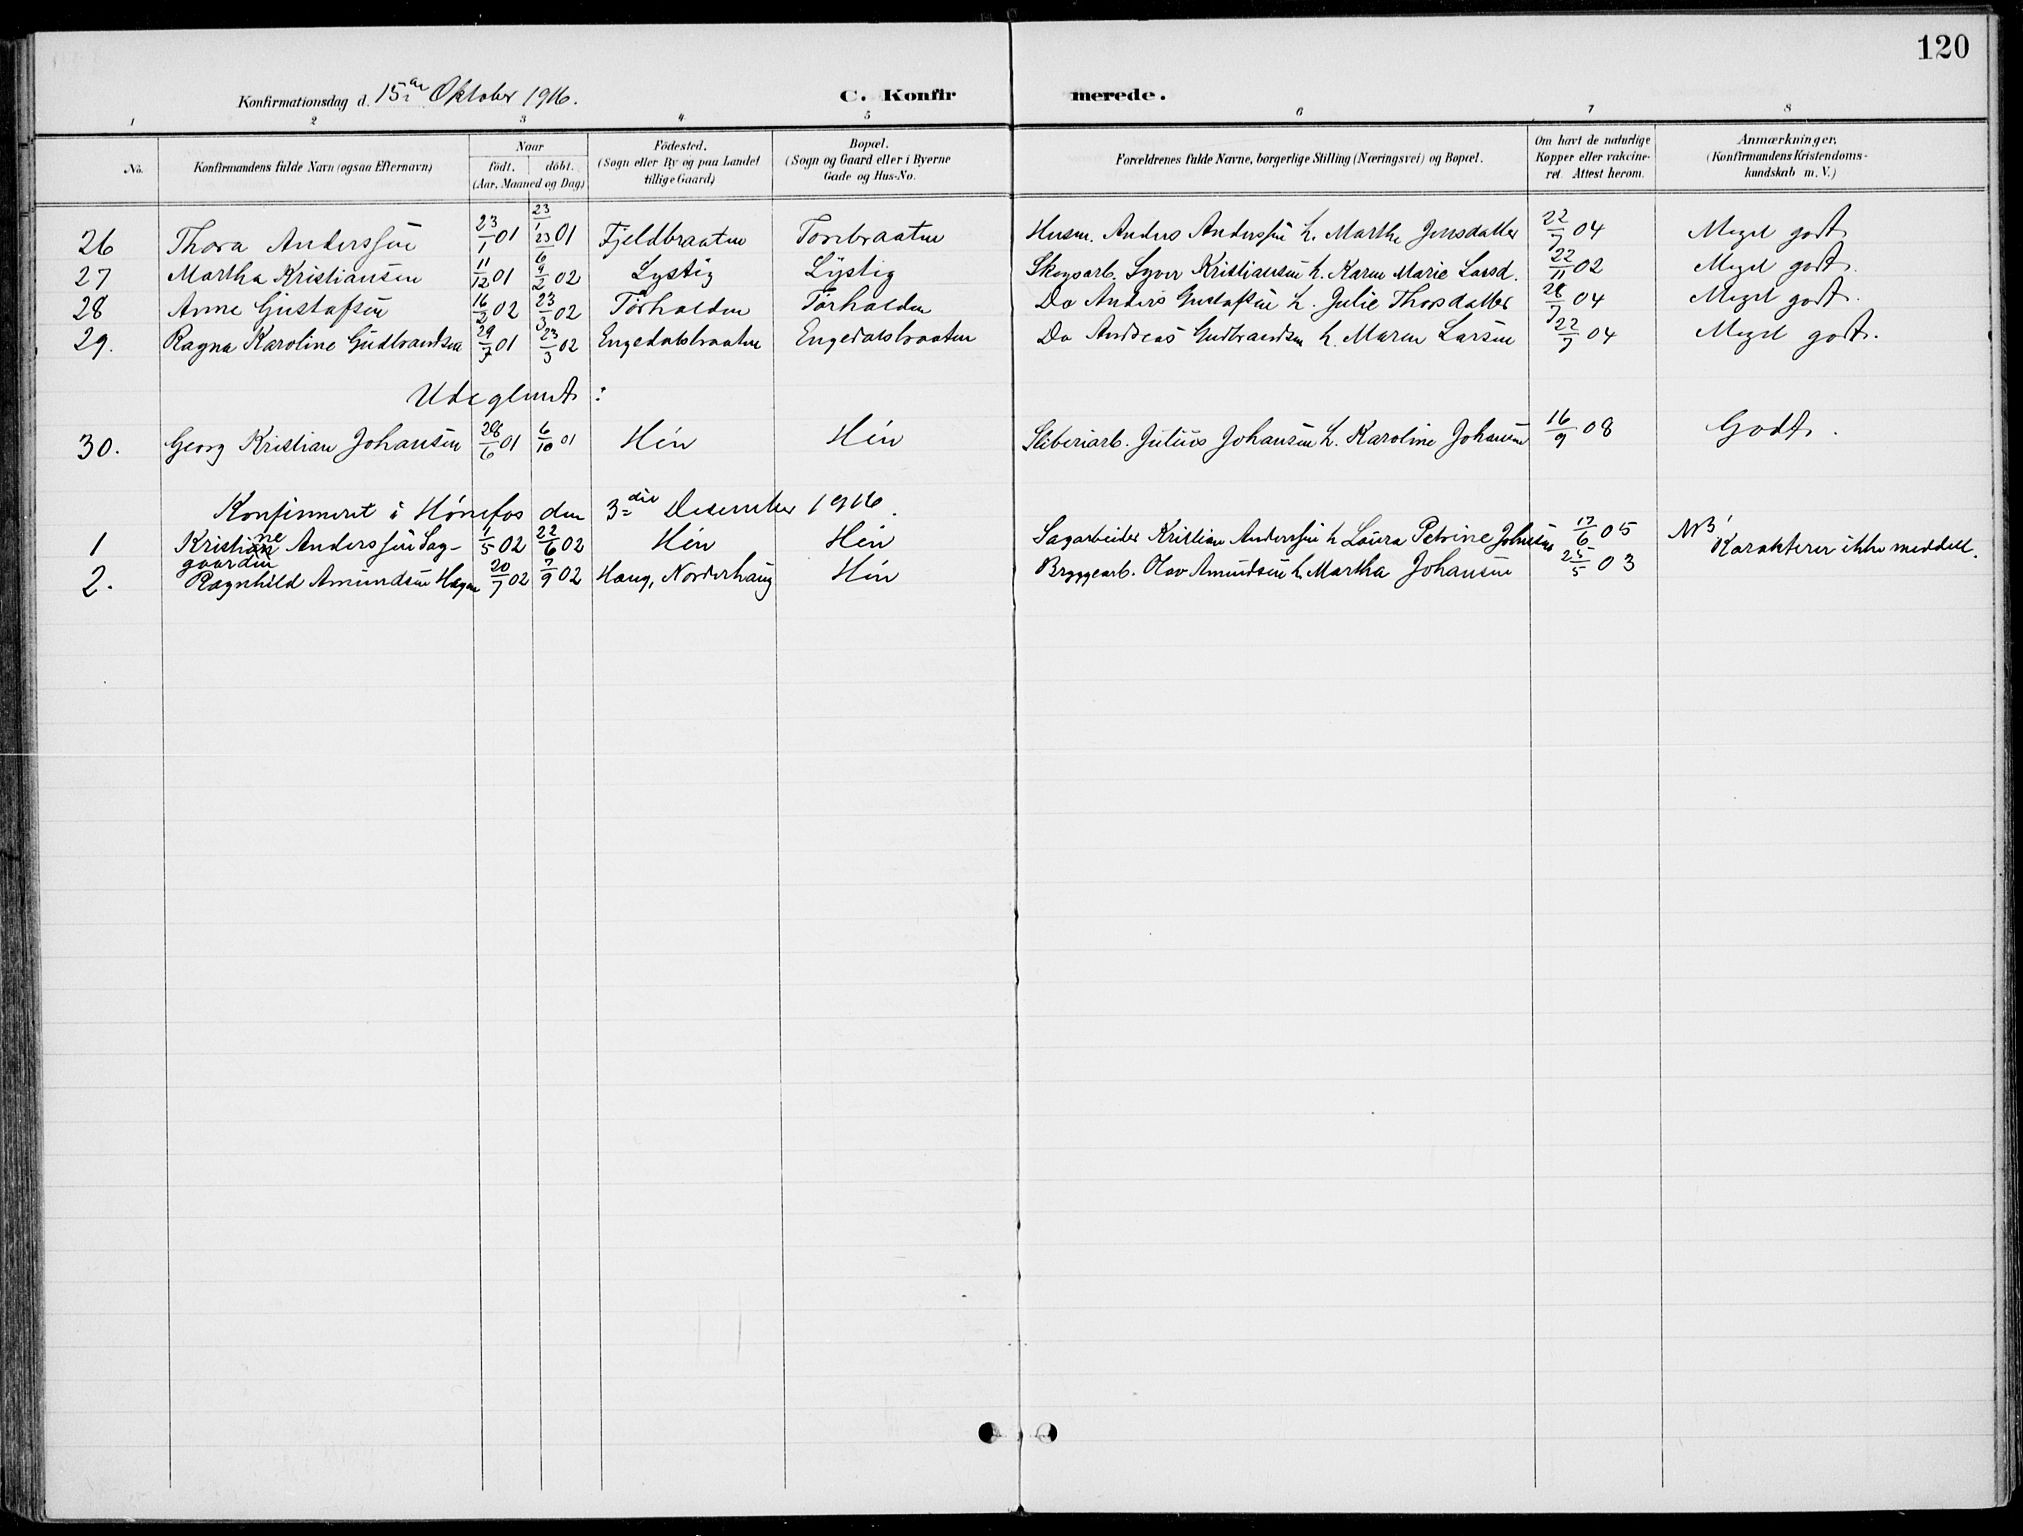 120
Konfirmationsdag d. 15de Oktober 1916. C. Konfir merede.
1 2 3 4 5 6 7 8
No. Konfirmandens fulde Navn (ogsaa Efternavn) Naar født. døbt. (Aar, Maaned og Dag) Fødested. (Sogn eller By og paa Landet tillige Gaard) Bopæl. (Sogn og Gaard eller i Byerne Gade og Hus-No. Forældrenes fulde Navne, borgerlige Stilling (Næringsvei) og Bopæl. Om havt de naturlige Kopper eller vakcineret. Attest herom. Anmærkninger. (Konfirmandens Kristendomskundskab m. V.)
26 Thora Anderssen 23/1 01 23/1 01 Fjeldbraaten Torebraaten Husm. Anders Anderssen h. Marthe Jensdatter 22/7 04 Meget godt
27 Martha Kristiansen 11/12 01 9/2 02 Lystig Lystig Skogsarb. Syver Kristiansen h. Karen Marie Larsd. 22/11 02 Meget godt.
28 Anne Gustafsen 16/2 02 23/3 02 Tørholden Tørholden Do Anders Gustafsen h. Julie Thorsdatter 28/7 04 Meget godt.
29. Ragna Karoline Gudbrandsen 29/7 01 23/3 02 Engedalsbraaten Engedalsbraaten Do Andreas Gudbrandsen h. Maren Larsen 22/7 04 Meget godt.
Udeglemt :
30. Georg Kristian Johansen 28/6 01 6/10 01 Hén Hén Sliberiarb. Julius Johansen h. Karoline Johansen 16/9 08 Godt.
Konfirmeret i Hønefos den 3die Desember 1916.
1 Kristiane Anderssen Saggaarden 1/5 02 22/6 02 Hén Hén Sagarbeider Kristian Anderssen h Laura Petrine Johnsen 17/6 05 NB! Karakterer ikke meddelt.
2. Ragnhild Amundsen Hagen 20/7 02 7/9 02 Haug, Norderhaug Hén Bryggearb. Olav Amundsen h. Martha Johansen 25/5 03